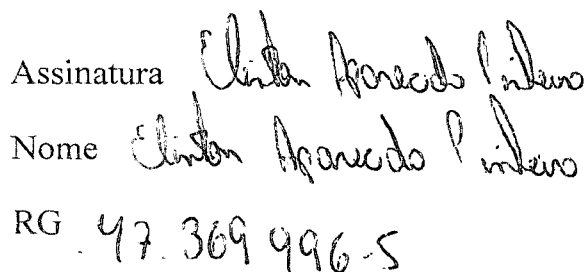 Assinatura Elinton Aparecido Pinheiro
Nome Elinton Aparecido Pinheiro
RG 47.369 996-5